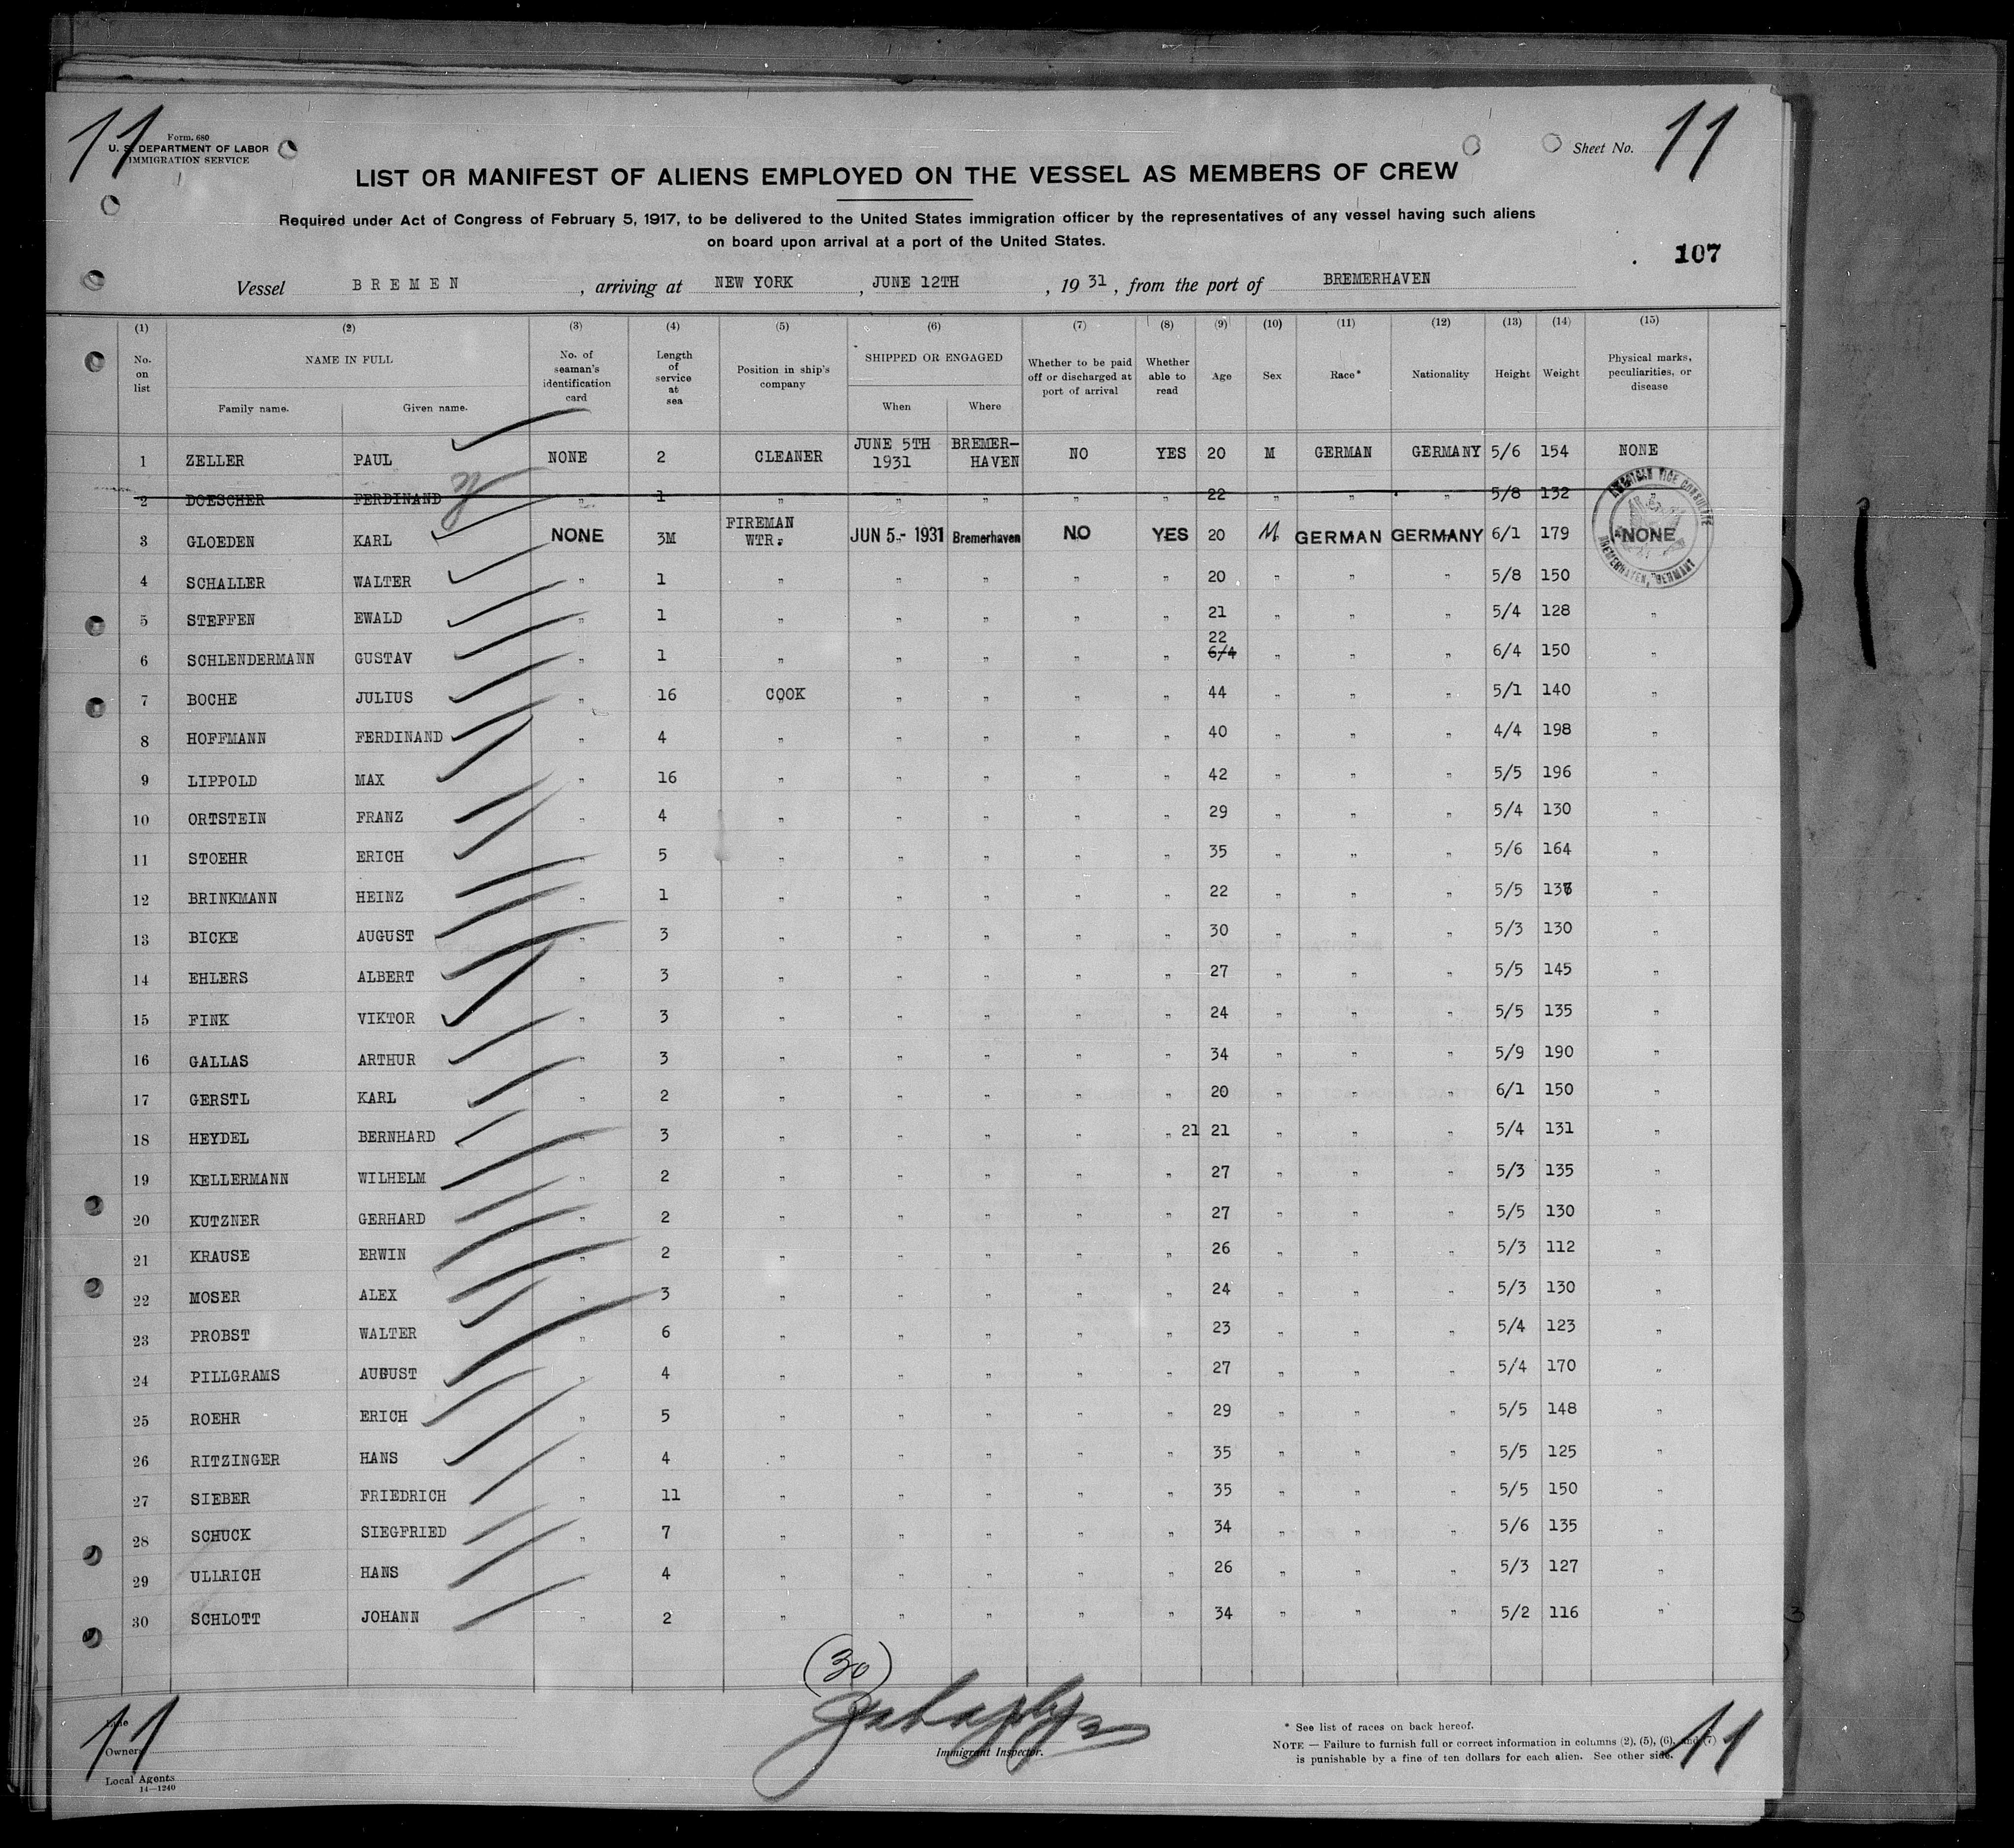 11
Form. 680
U. S. DEPARTMENT OF LABOR
IMMIGRATION SERVICE
Sheet No. 11
LIST OR MANIFEST OF ALIENS EMPLOYED ON THE VESSEL AS MEMBERS OF CREW
Required under Act of Congress of February 5, 1917, to be delivered to the United States immigration officer by the representatives of any vessel having such aliens
on board upon arrival at a port of the United States.
107
Vessel BREMEN, arriving at NEW YORK, JUNE 12TH, 1931, from the port of BREMERHAVEN
(1) (2) (3) (4) (5) (6) (7) (8) (9) (10) (11) (12) (13) (14) (15)
No. on list NAME IN FULL Family name. Given name. No. of seaman's identification card Length of service at sea Position in ship's company SHIPPED OR ENGAGED When Where Whether to be paid off or discharged at port of arrival Whether able to read Age Sex Race* Nationality Height Weight Physical marks, peculiarities, or disease
1 ZELLER PAUL NONE 2 CLEANER JUNE 5TH 1931 BREMER-HAVEN NO YES 20 M GERMAN GERMANY 5/6 154 NONE
2 DOESCHER FERDINAND " 1 " " " " " 22 " " " 5/8 132
AMERICAN VICE CONSULATE BREMERHAVEN, GERMANY
3 GLOEDEN KARL NONE 3M FIREMAN WTR. JUN 5 - 1931 Bremerhaven NO YES 20 M GERMAN GERMANY 6/1 179 NONE
4 SCHALLER WALTER " 1 " " " " " 20 " " " 5/8 150 "
5 STEFFEN EWALD " 1 " " " " " 21 " " " 5/4 128 "
6 SCHLENDERMANN GUSTAV " 1 " " " " " 22 6/4 " " " 6/4 150 "
7 BOCHE JULIUS " 16 COOK " " " " 44 " " " 5/1 140 "
8 HOFFMANN FERDINAND " 4 " " " " " 40 " " " 4/4 198 "
9 LIPPOLD MAX " 16 " " " " " 42 " " " 5/5 196 "
10 ORTSTEIN FRANZ " 4 " " " " " 29 " " " 5/4 130 "
11 STOEHR ERICH " 5 " " " " " 35 " " " 5/6 164 "
12 BRINKMANN HEINZ " 1 " " " " " 22 " " " 5/5 "
13 BICKE AUGUST " 3 " " " " " 30 " " " 5/3 130 "
14 EHLERS ALBERT " 3 " " " " " 27 " " " 5/5 145 "
15 FINK VIKTOR " 3 " " " " " 24 " " " 5/5 135 "
16 GALLAS ARTHUR " 3 " " " " " 34 " " " 5/9 190 "
17 GERSTL KARL " 2 " " " " " 20 " " " 6/1 150 "
18 HEYDEL BERNHARD " 3 " " " " " 21 21 " " " 5/4 131 "
19 KELLERMANN WILHELM " 2 " " " " " 27 " " " 5/3 135 "
20 KUTZNER GERHARD " 2 " " " " " 27 " " " 5/5 130 "
21 KRAUSE ERWIN " 2 " " " " " 26 " " " 5/3 112 "
22 MOSER ALEX " 3 " " " " " 24 " " " 5/3 130 "
23 PROBST WALTER " 6 " " " " " 23 " " " 5/4 123 "
24 PILLGRAMS AUGUST " 4 " " " " " 27 " " " 5/4 170 "
25 ROEHR ERICH " 5 " " " " " 29 " " " 5/5 148 "
26 RITZINGER HANS " 4 " " " " " 35 " " " 5/5 125 "
27 SIEBER FRIEDRICH " 11 " " " " " 35 " " " 5/5 150 "
28 SCHUCK SIEGFRIED " 7 " " " " " 34 " " " 5/6 135 "
29 ULLRICH HANS " 4 " " " " " 26 " " " 5/3 127 "
30 SCHLOTT JOHANN " 2 " " " " " 34 " " " 5/2 116 "
(30)
11
Owners
Local Agents
14—1240
Immigrant Inspector.
* See list of races on back hereof.
NOTE — Failure to furnish full or correct information in columns (2), (5), (6), and (7)
is punishable by a fine of ten dollars for each alien. See other side.
11